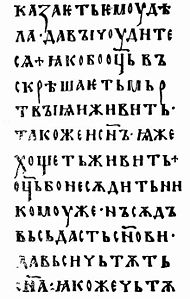 КАЗАѤТЬѤМОУДѢ
ЛА·ДАВЪІЧОУДИТЕ
СѦ+ꙖКОБООЦ҃ЬВЪ
СКРѢШАѤТЬМЬР
ТВЪІѨИЖИВИТЬ·
ТАКОЖЕИСН҃Ъ·ѨЖЕ
ХОЩЕТЬЖИВИТЬ+
ОЦ҃ЬБОНЕСѪДИТЬНИ
КОМОУЖЕ·НЪСѪДЪ
ВЬСЬДАСТЬСН҃ОВИ·
ДАВЬСИЧЬТѪТЬ
СН҃А·ꙖКОЖЕЧЬТѪ